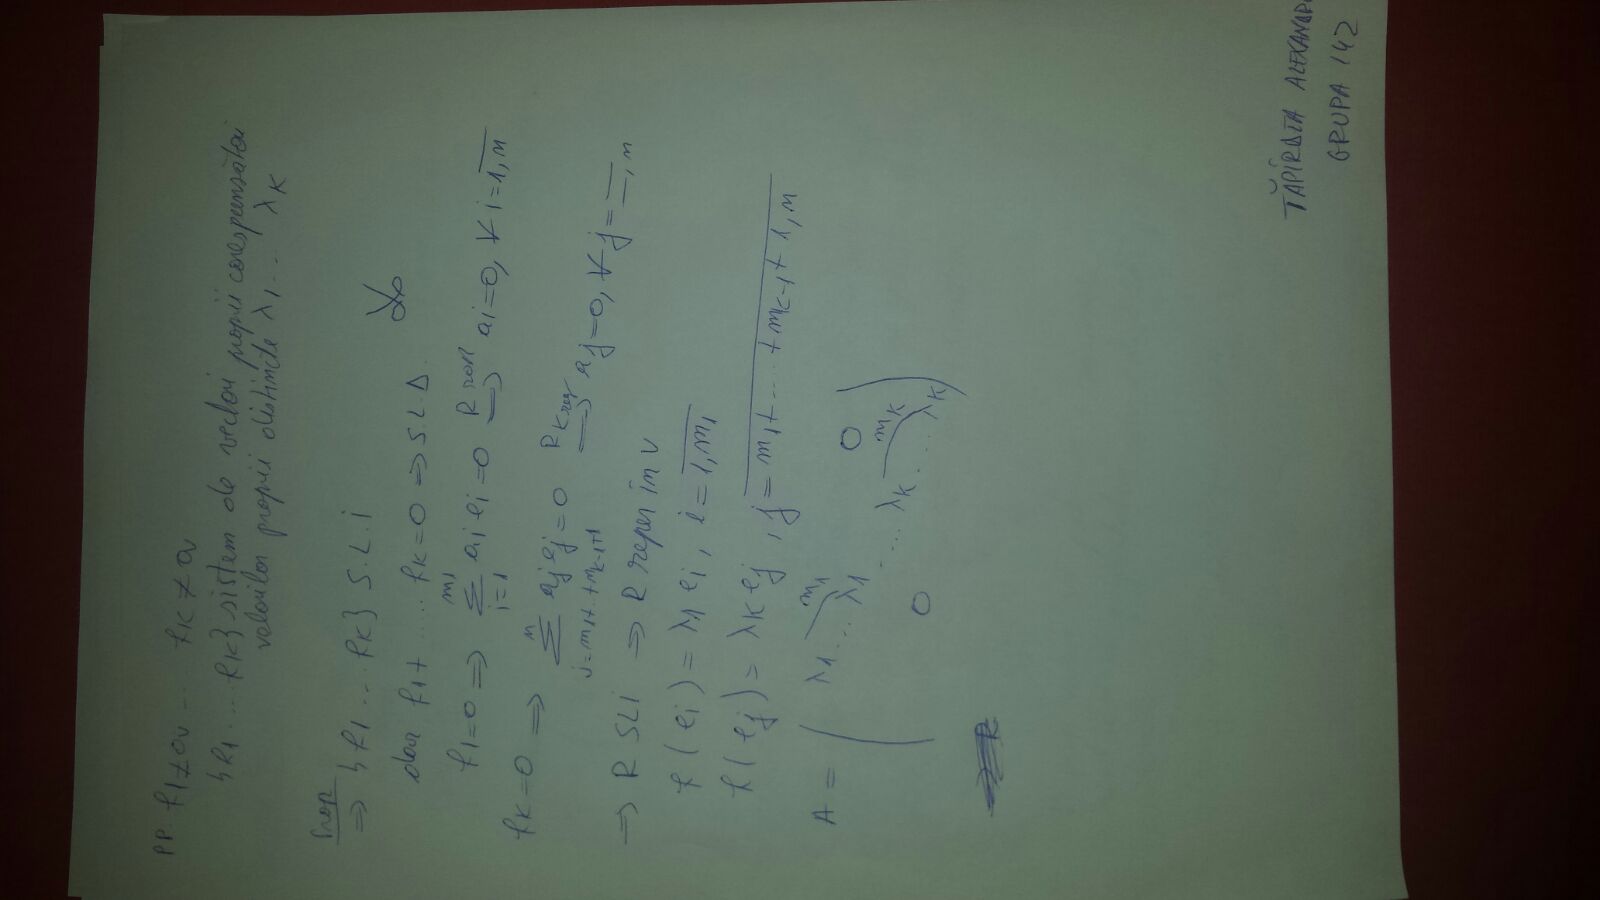 PP. f1≠0v .... fK≠0v
{f1....fK} sistem de vectori proprii corespunzători
valorilor proprii distincte λ1... λK
Prop
=> {f1...fK} S.L.i
dar f1+....fK=0 => S.L.D.
f1=0 => m1∑i=1 ai ei=0 R1 => ai=0, ∀ i=1,n
fK=0 => n∑j=m1+..+mK-1+1 aj ej=0 RK reper => aj=0, ∀ j= ,n
=> R SLi => R reper în V
f(ei)=λ1 ei, i=1,m1
f(ej)=λK ej, j=m1+....+mK-1+1,n
A = ( λ1...λ1 m1 .... λK....λK mK 0 0 )
R
ȚAPÎRDEA
GRUPA 142